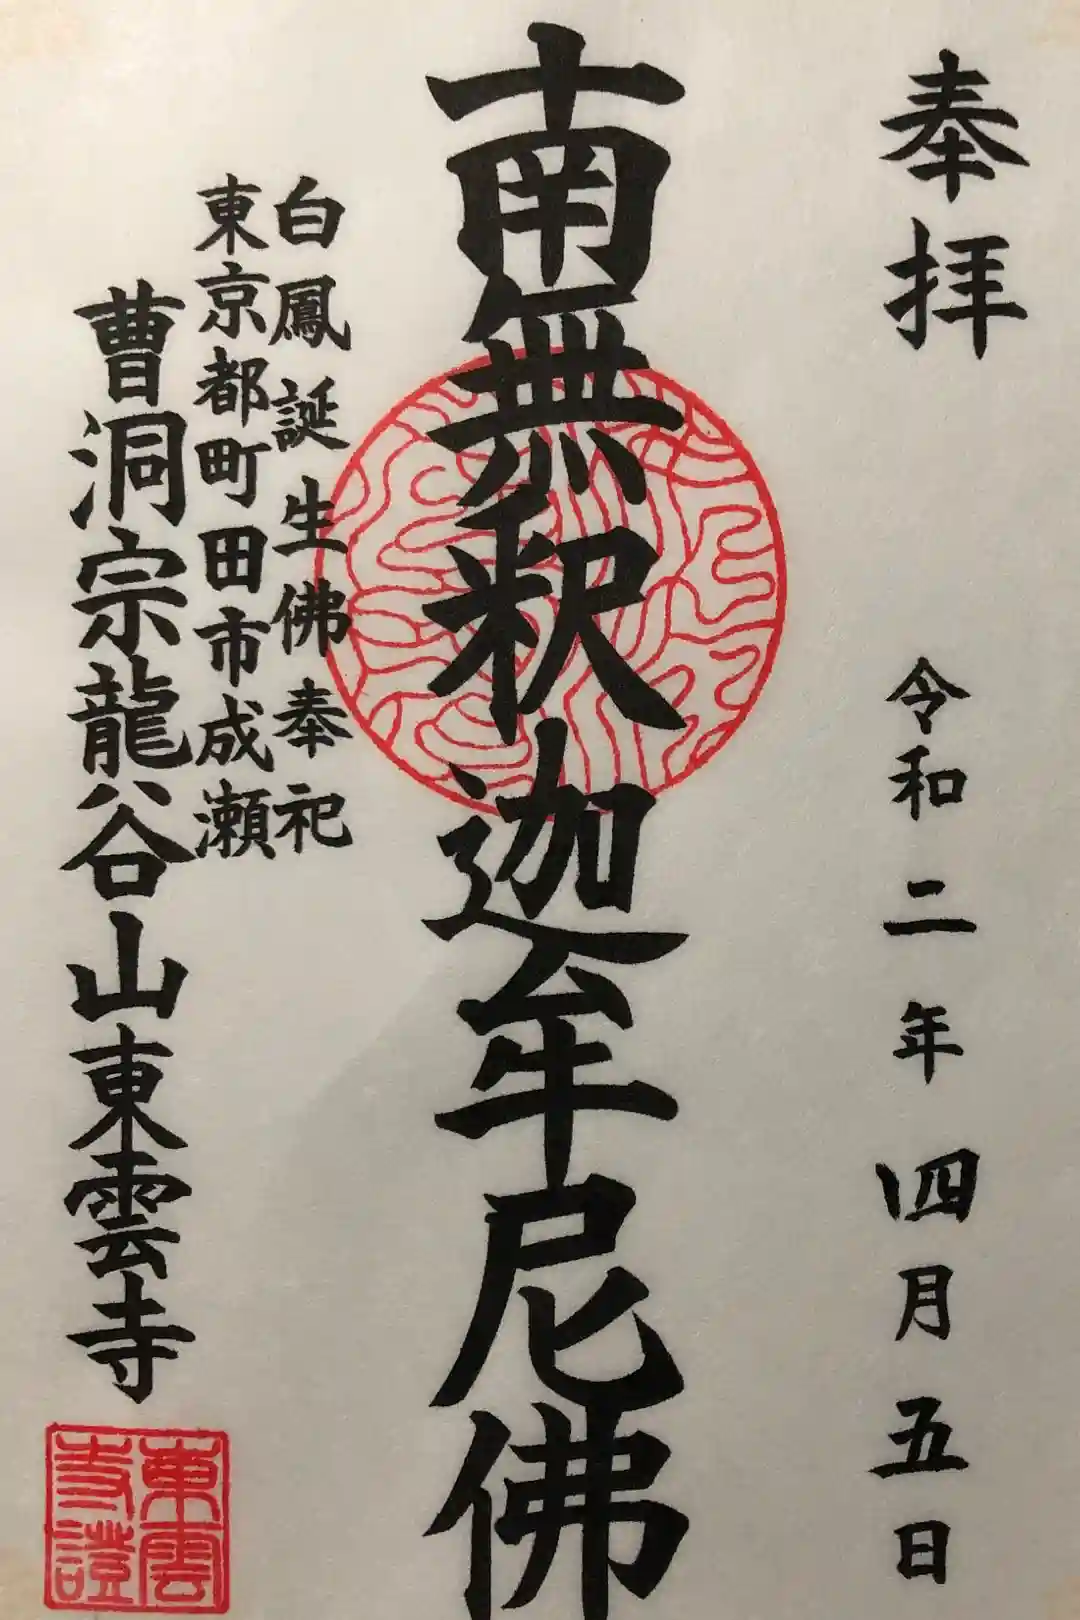 奉拝
令和二年四月五日
南無釈迦牟尼佛
白鳳誕生佛奉祀
東京都町田市成瀬
曹洞宗龍谷山東雲寺
東雲
寺證